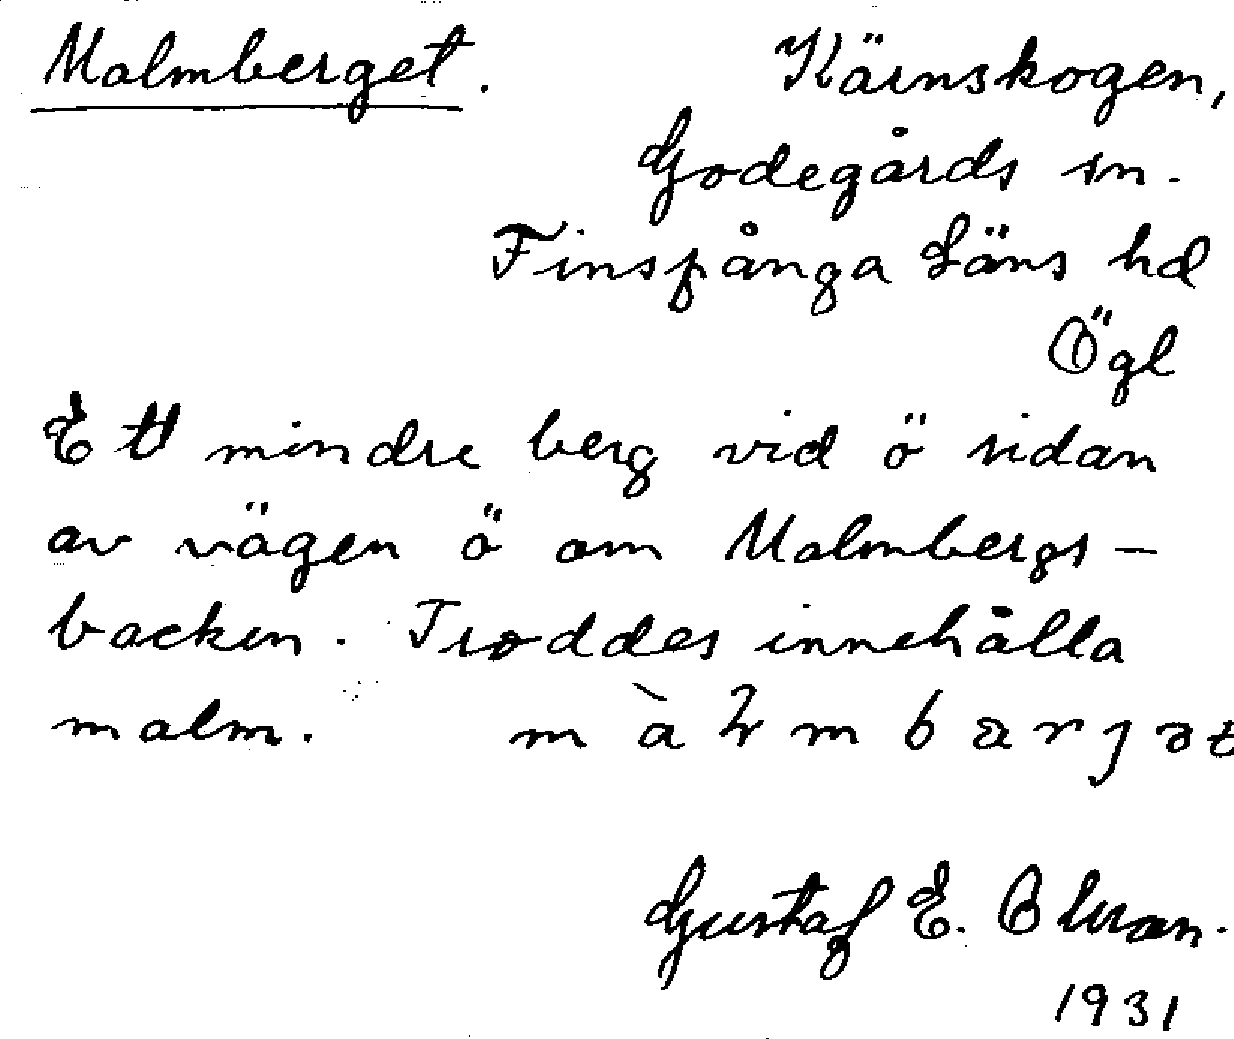 Malmberget. Kärnskogen,
Godegårds sn.
Finspånga Läns hd
Ögl
Ett mindre berg vid ö sidan
av vägen ö om Malmbergs-
backen. Troddes innehålla
malm.
Gustaf E.
1931